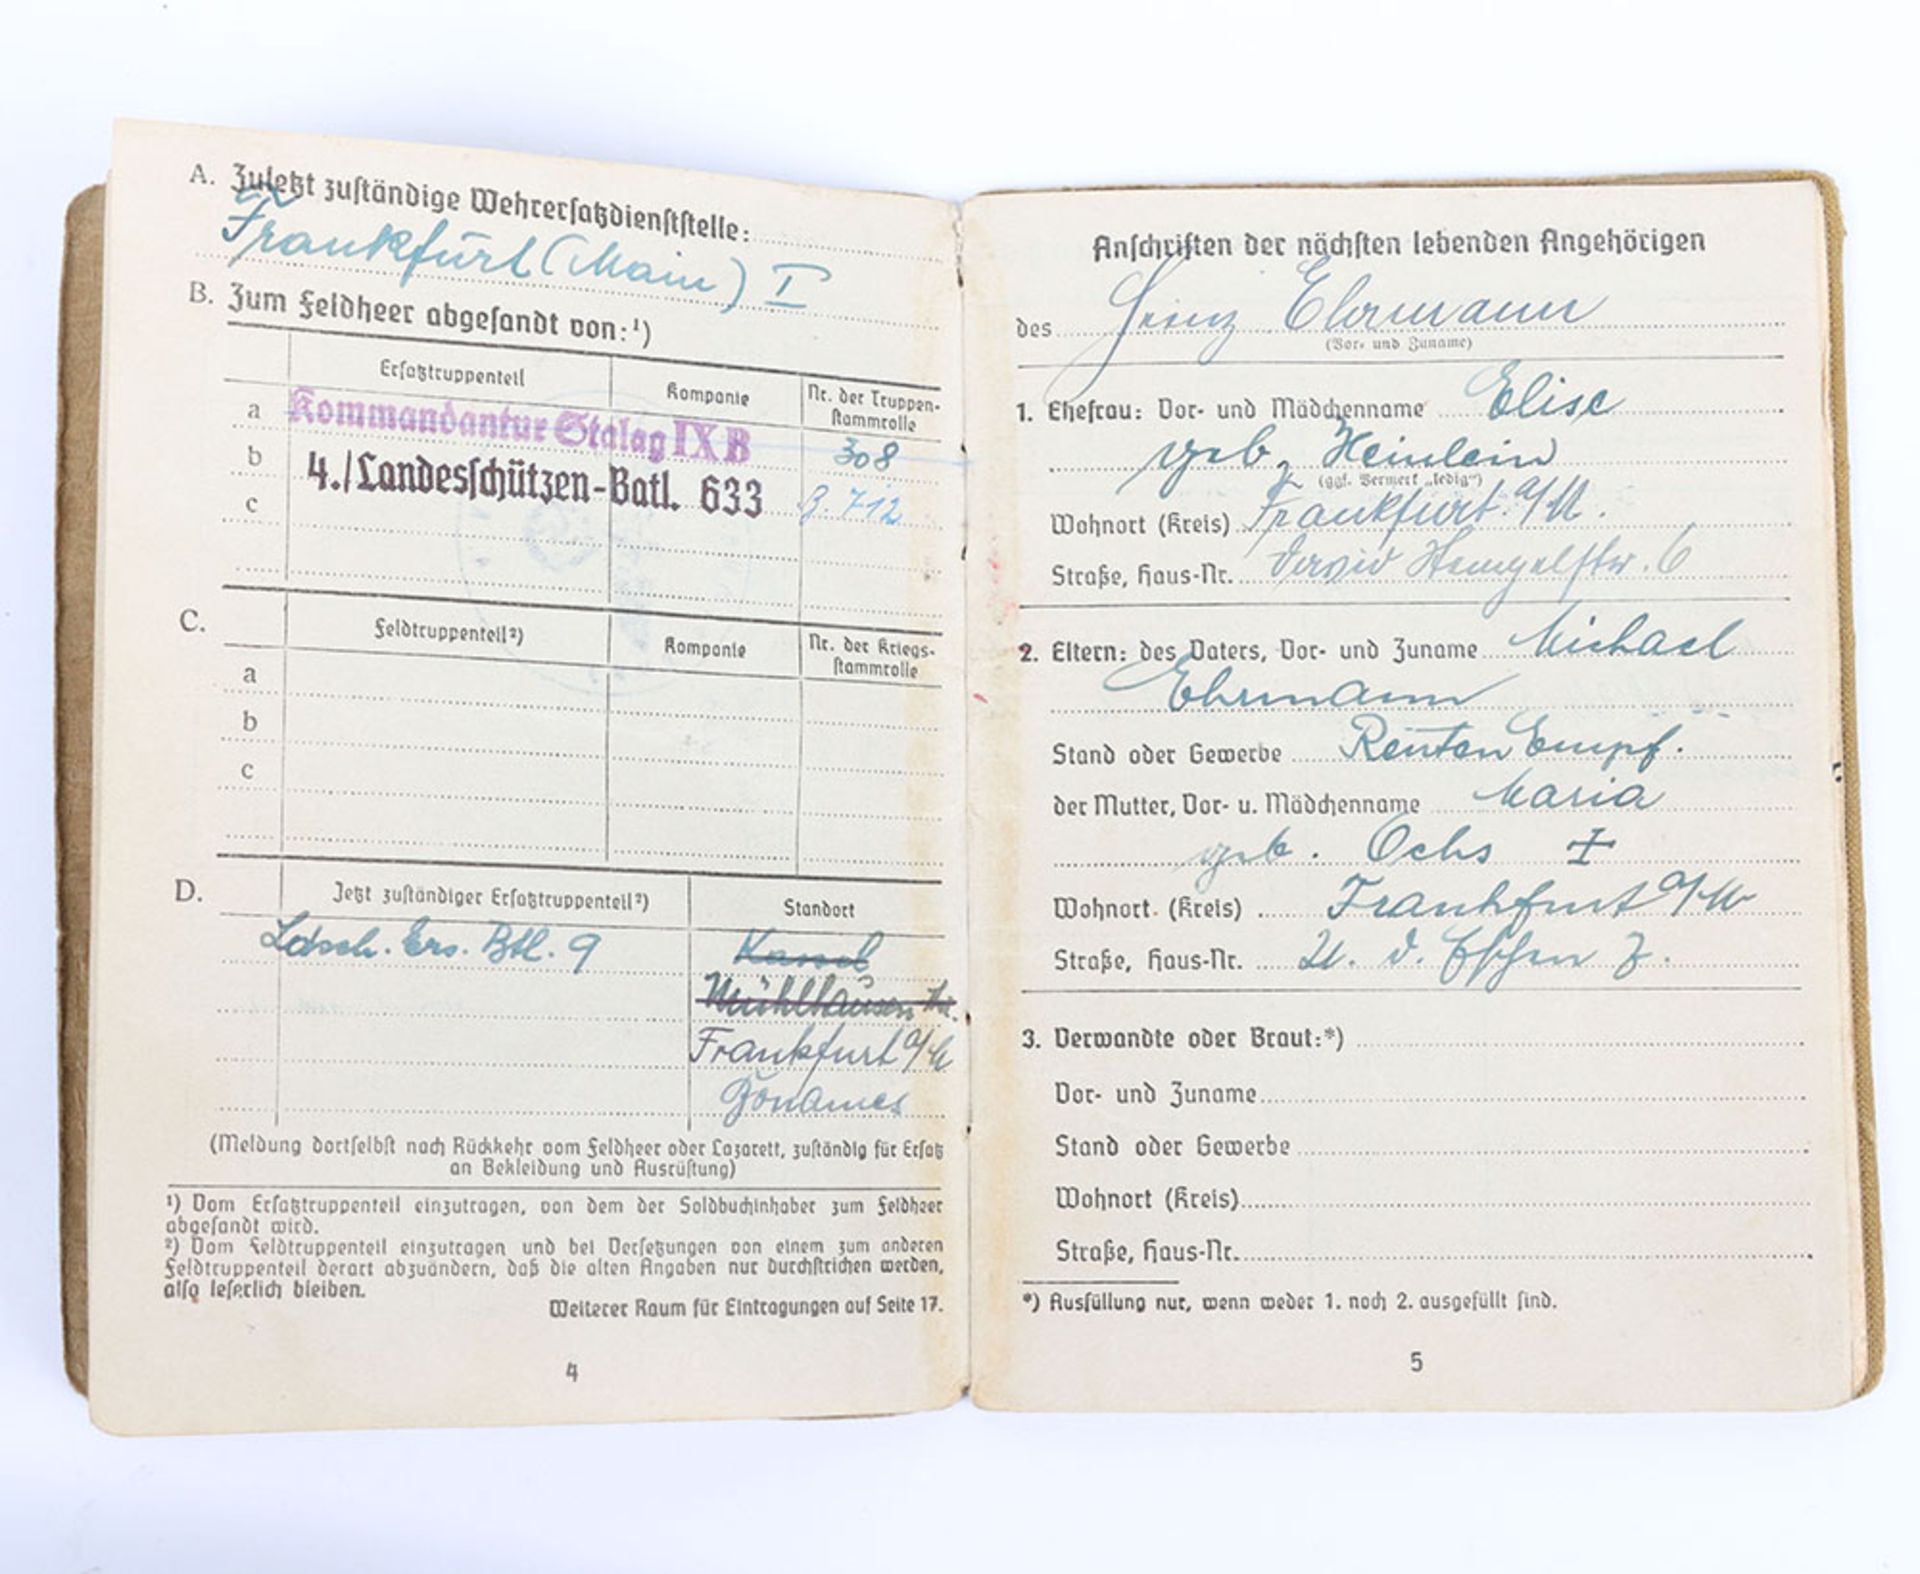 A. Zuletzt zuständige Wehrersatzdienststelle:
Frankfurt (Main) I
B. Zum Feldheer abgesandt von:¹)
Ersatztruppenteil Kompanie Nr. der Truppen-
stammrolle
a Kommandantur Stalag IX B 308
b 4./Landesschützen-Batl. 633 712
c
C. Feldtruppenteil²) Kompanie Nr. der Kriegs-
stammrolle
a
b
c
D. Jetzt zuständiger Ersatztruppenteil²) Standort
Ldsch. Ers. Btl. 9 Kassel
Mühlhausen Th.
Frankfurt a/M
Bonames
(Meldung dortselbst nach Rückkehr vom Feldheer oder Lazarett, zuständig für Ersatz
an Bekleidung und Ausrüstung)
¹) Vom Ersatztruppenteil einzutragen, von dem der Soldbuchinhaber zum Feldheer
abgesandt wird.
²) Vom Feldtruppenteil einzutragen und bei Versetzungen von einem zum anderen
Feldtruppenteil derart abzuändern, daß die alten Angaben nur durchstrichen werden,
also leserlich bleiben.
Weiterer Raum für Eintragungen auf Seite 17.
4
Anschriften der nächsten lebenden Angehörigen
des Heinz Ehrmann
(Vor- und Zuname)
1. Ehefrau: Vor- und Mädchenname Elise
geb. Heinlein
(ggf. Vermerk „ledig“)
Wohnort (Kreis) Frankfurt a/M.
Straße, Haus-Nr. 6
2. Eltern: des Vaters, Vor- und Zuname Michael
Ehrmann
Stand oder Gewerbe Renten Empf.
der Mutter, Vor- u. Mädchenname Maria
geb. Ochs
Wohnort (Kreis) Frankfurt a/M
Straße, Haus-Nr.
3. Verwandte oder Braut:*)
Vor- und Zuname
Stand oder Gewerbe
Wohnort (Kreis)
Straße, Haus-Nr.
*) Ausfüllung nur, wenn weder 1. noch 2. ausgefüllt sind.
5